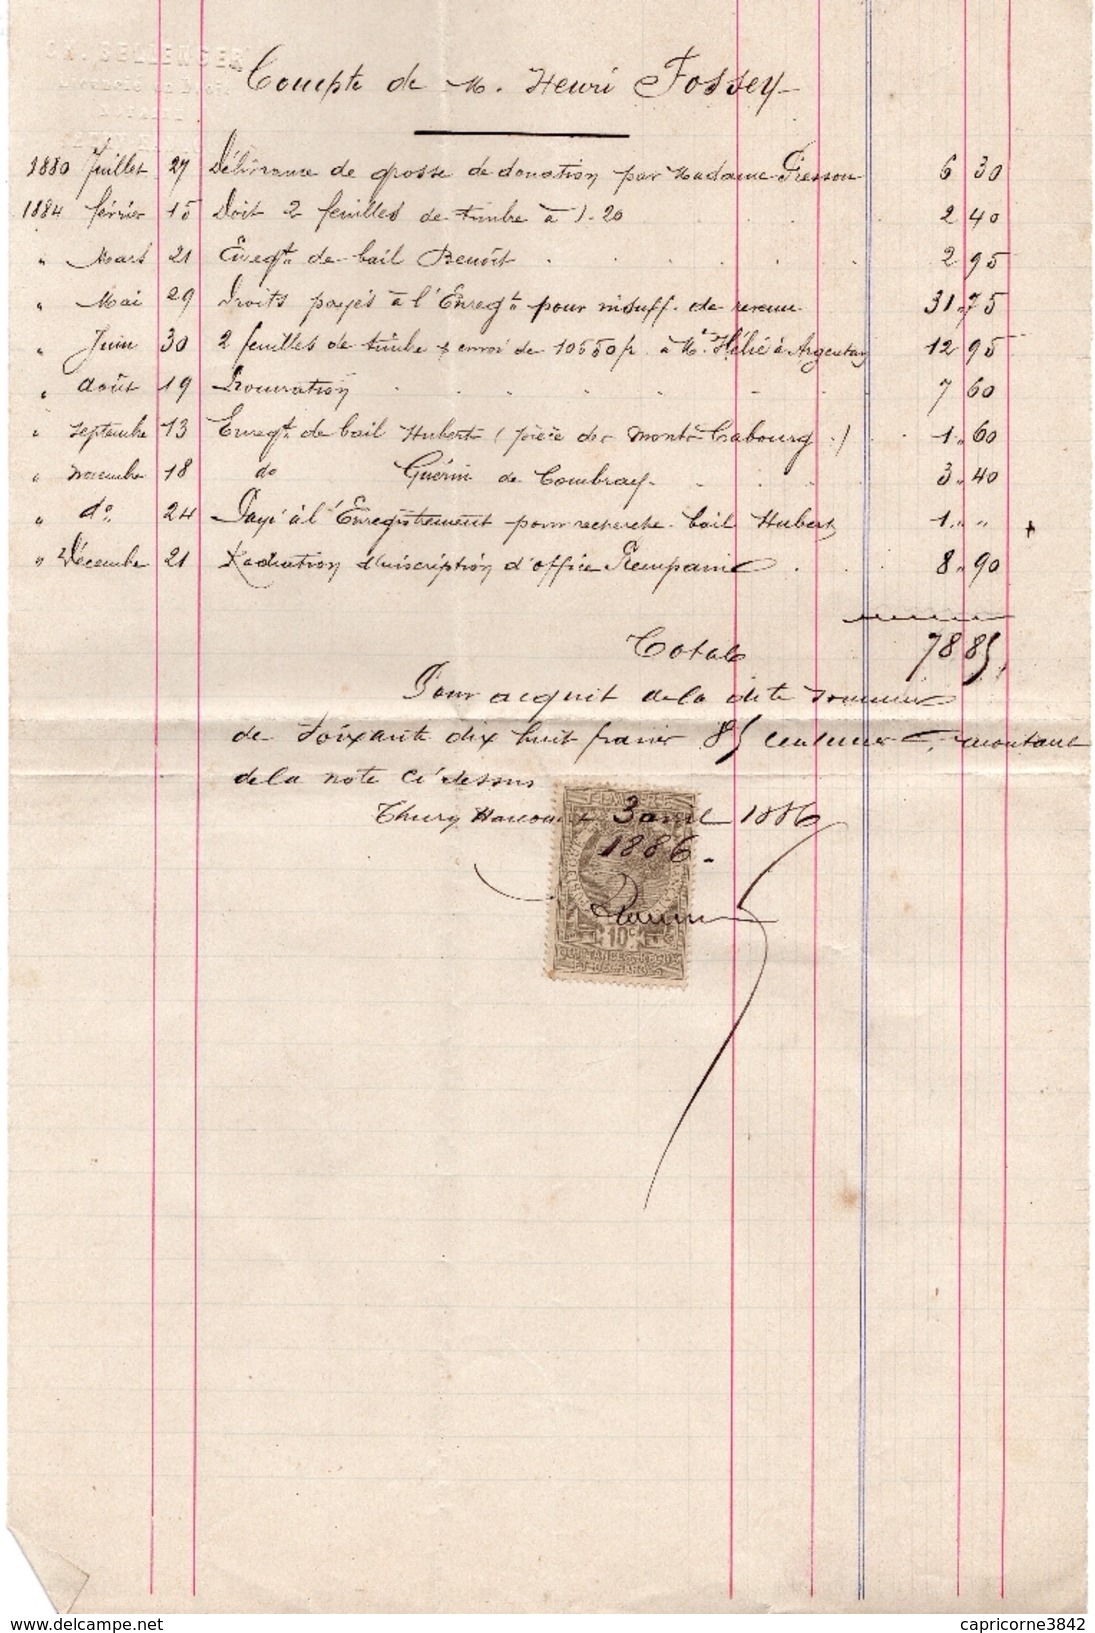 Compte de M. Henri Fossey
1880 Juillet 27 Délivrance de grosse de donation par Madame 6 30
1884 février 15 Doit 2 feuilles de timbre à 1.20 2 40
" Mars 21 Enregt de bail Benoît 2 95
" Mai 29 Droits payés à l'Enregt pour insuff. de revenu 31.75
" Juin 30 2 feuilles de timbre & envoi de 10550 fr. à Me Hélie à Argentan 12 95
" août 19 Procuration 7 60
" Septembre 13 Enregt de bail Hubert (pièce de Mont-Cabourg.) 1. 60
" novembre 18 do Guérin de Combray 3. 40
" do 24 Payé à l'Enregistrement pour recherche bail Hubert 1. "
" Décembre 21 Radiation d'inscription d'office 8. 90
Total 78 85
Pour acquit de la dite somme
de Soixante dix huit francs 85 centimes montant
de la note ci dessus
Thury Harcourt 3 avril 1886
1886.
TIMBRE
10c
QUITTANCES REÇUS
ET DÉCHARGES
capricorne3842